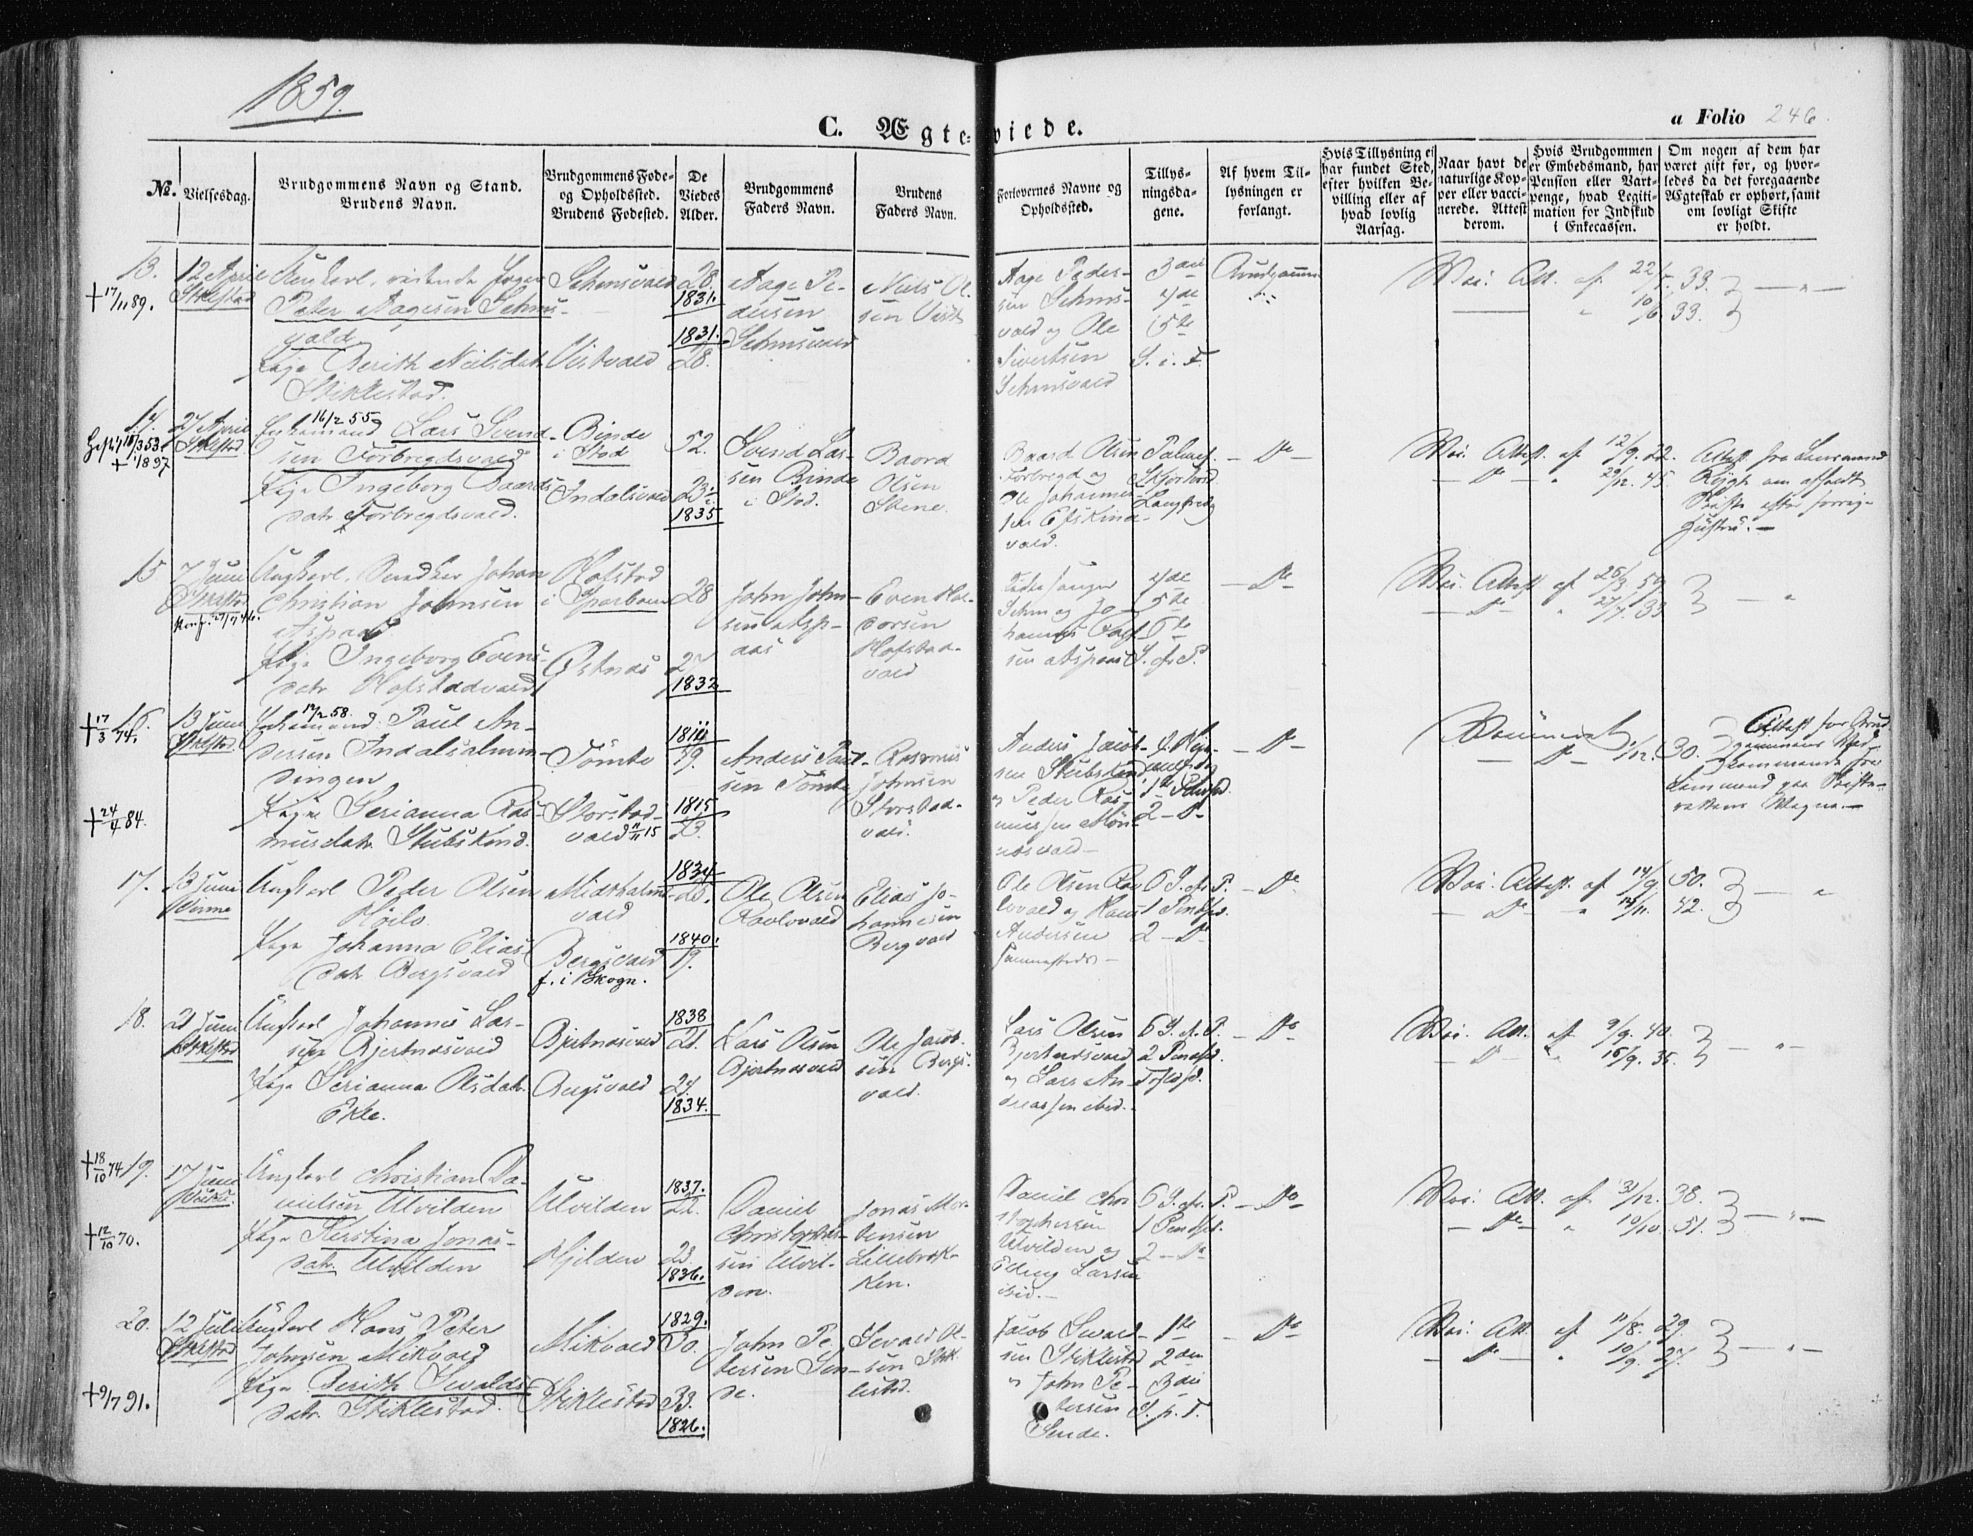 1859.
C. Ægteviede.
a Folio 246.
No.
Vielsesdag.
Brudgommens Navn og Stand.
Brudens Navn.
Brudgommens Føde-
og Opholdssted.
Brudens Fødested.
De
Viedes
Alder.
Brudgommens
Faders Navn.
Brudens
Faders Navn.
Forlovernes Navne og
Opholdssted.
Tillys-
ningsda-
gene.
Af hvem Til-
lysningen er
forlangt.
Hvis Tillysning ei
har fundet Sted,
efter hvilken Be-
villing eller af
hvad lovlig
Aarsag.
Naar havt de
naturlige Kop-
per eller vacci-
nerede. Attest
derom.
Hvis Brudgommen
er Embedsmand, har
Pension eller Vart-
penge, hvad Legiti-
mation for Indskud
i Enkecassen.
Om nogen af dem har
været gift før, og hvor-
ledes da det foregaaende
Ægteskab er ophørt, samt
om lovligt Skifte
er holdt.
13.
+17/11 89.
12 April
Stiklestad
Ungkarl, ridende Jæger
Peter Aagesen Sehms-
vald
Pige Berith Nielsdatr
Stiklestad.
Sehmsvald
Vistvald
28.
1831.
1831.
28.
Aage Pe-
dersen
Sehmsvald
Niels Ol-
sen Vist
Aage Peder-
sen Sehms-
vald og Ole
Sivertsen
Sehmsvald
3die
4de
5te
S. i. F.
Brudgommen
Vac. Att. af 22/5. 33.
" 10/6. 33.
— " —
14.
+ 1897
27 April
Stiklestad
Enkemand 16/2 55 Lars Svend-
sen Forbregdsvald
Pige Ingeborg Baards-
datr Forbregdsvald.
Binde
i Stod
Indalsvald
52.
23 1/2
1835
Svend Lar-
sen Binde
i Stod.
Baard
Olsen
Stene.
Baard Olsen
Forbregd og
Ole Johannes-
sen Eklskind-
vald.
Palmes.
Skjertorsd
Langfredag
— Do —
Vac. Attest. af 12/9. 22.
— Do — " 29/12. 45.
Attest fra Lensmand
om afholdt
Skifte efter forrige
Hustru. —
15
7 Juni
Stiklestad
Konf. 27/7 46.
Ungkarl, Snedker Johan
Christian Johnsen
Aspaas
Pige Ingeborg Evens-
datr Hofstadvald
Hofstad
i Sparboen
Østnæs
28
27
1832
John John-
sen Asp-
aas
Even Hal-
dorsen
Hofstad-
vald
Sehm og Jo-
hannes
sen Aspaas
4de
5te
6te
S. e. P.
— Do —
Vac. Attest. af 25/3. 59
— Do — " 27/7. 33
— "
16.
+17/3 74.
+24/4 84.
13 Juni
Stiklestad.
Enkemand 12/2 58. Paul An-
dersen Indalsalmin-
dingen
Pige Serianna Ras-
musdatr Stubskind.
Tømte
Storstad-
vald 11/11 15
1810
49.
1815
23.
Anders Paul-
sen Tømte
Rasmus
Johnsen
Storstad-
vald.
Anders Jacob-
sen Stubskind
og Peder Ras-
mussen Mön-
næsvald —
1ste Pintsd.
2 — Do
— Do —
Vaccineret
— Do — 1/12. 30.
Attest for Brud-
gommens Ved-
kommende fra
Lensmand paa Skifte-
rettens Vegne. —
17.
13 Juni
Vinne
Ungkarl Peder Olsen
Hoilo
Pige Johanna Elias-
datr Bergsvald
Midtholm-
vald
Bergsvald
f. i Skogn.
1834
25.
1840.
19.
Ole Olsen
Ravlovald
Elias Jo-
hannesen
Bergvald
Ole Olsen Rav-
lovald og Hans
Andersen
sammesteds —
6 S. e. P.
1 Pintsd.
2 — Do
— Do
Vac. Attest. af 14/9. 50.
— Do — " 14/11. 42.
— "
18.
21 Juni
Stiklestad
Ungkarl Johannes Lar-
sen Bjertnæsvald
Pige Serianna Olsdatr
Ekle.
Bjertnæsvald
Bergsvald
1838
21.
24.
1834.
Lars Olsen
Bjertnæsvald
Ole Jacob-
sen Bergs-
vald.
Lars Olsen
Bjertnæsvald
og Lars An-
dreassen ibid. —
6 S. e. P.
2 Pintsd.
Trefsd.
— Do —
Vac. Att. af 9/9. 40.
— Do — " 15/9. 35.
— " —
19.
+18/10 74
+12/10 70.
17 Juni
Ungkarl Christian Da-
nielsen Ulvilden
Pige Kerstina Jonas-
datr. Ulvilden
Ulvilden
Hjelden
1837.
22.
23.
1836.
Daniel
Christophers-
sen Ulvil-
den.
Jonas Mor-
tensen
Lillebrok-
ken.
Daniel Chri-
stophersen
Ulvilden og
Elling Larsen
ibid. —
6 S. e. P.
1 Pintsd.
2 — Do
— Do —
Vac. Att. af 31/12. 38.
— Do — " 10/10. 51.
— " —
20.
+9/7 91.
12 Juli
Stiklestad
Ungkarl Hans Peter
Johnsen Mikvold
Pige Berith Sevalds-
datr. Stiklestad.
Mikvold
Stiklestad
1829.
30.
33.
1826.
John Pe-
tersen Sen-
de.
Sevald Ol-
sen Stik-
lestad.
Jacob Sevald-
sen Stiklestad
og John Pe-
tersen
Sende.
1ste
2den
3die
S. p. T.
— Do —
Vac. Att. af 11/8. 29.
— Do — " 10/9. 27.
— " —